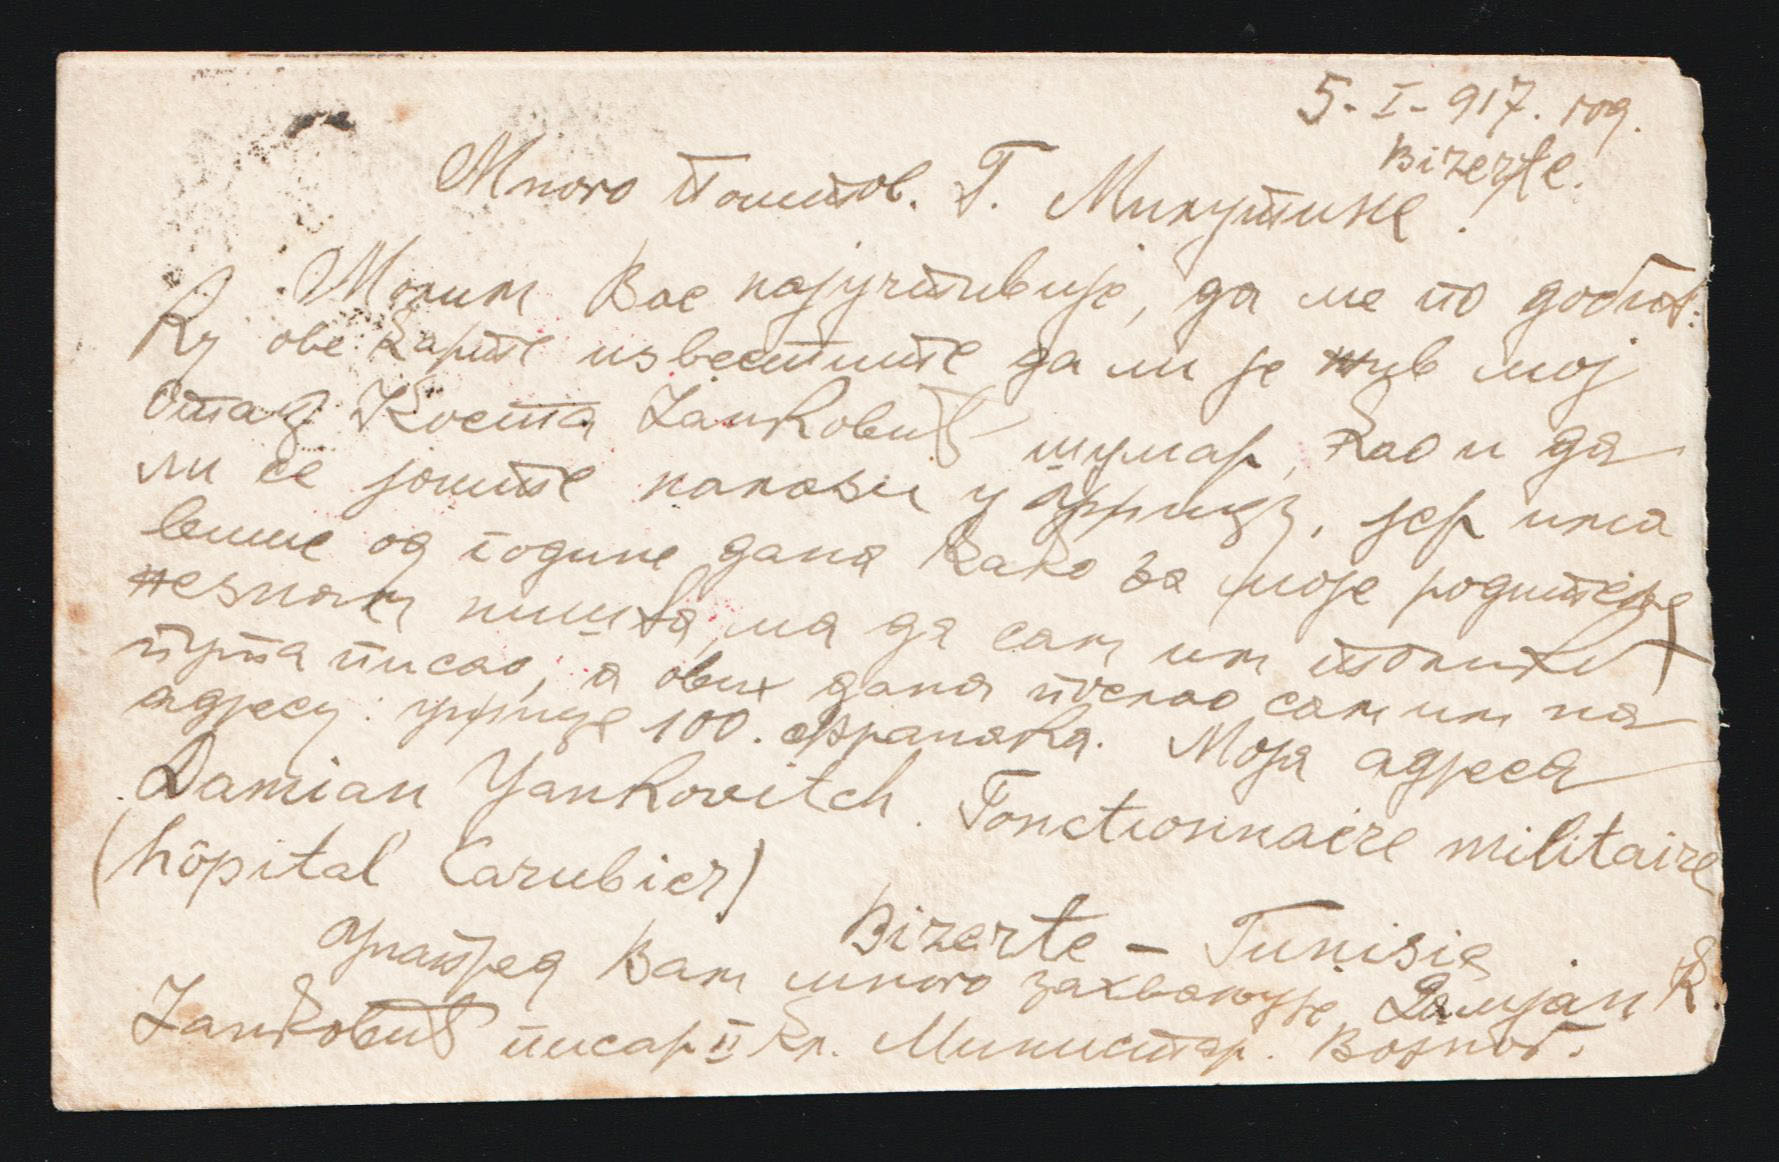 5-I-917. год.
Bizerte.
Много Поштов. Г. Милутине.
Молим Вас најучтивије, да ме по добит.
ку ове карте известите да ли је жив мој
Отац Коста Јанковић шумар, као и да
ли се јоште налази у Ужицу, јер има
више од године дана како за моје родитеље
незнам ништа, ма да сам им толико
пута писао, а ових дана послао сам им на
адресу: Ужице 100. франака. Моја адреса
Damian Yankovitch. Fonctionnaire militaire
(hôpital Carubier)
Bizerte - Tunisie
Унапред Вам много захваљује Дамјан К.
Јанковић писар II кл. Министар. Војног.